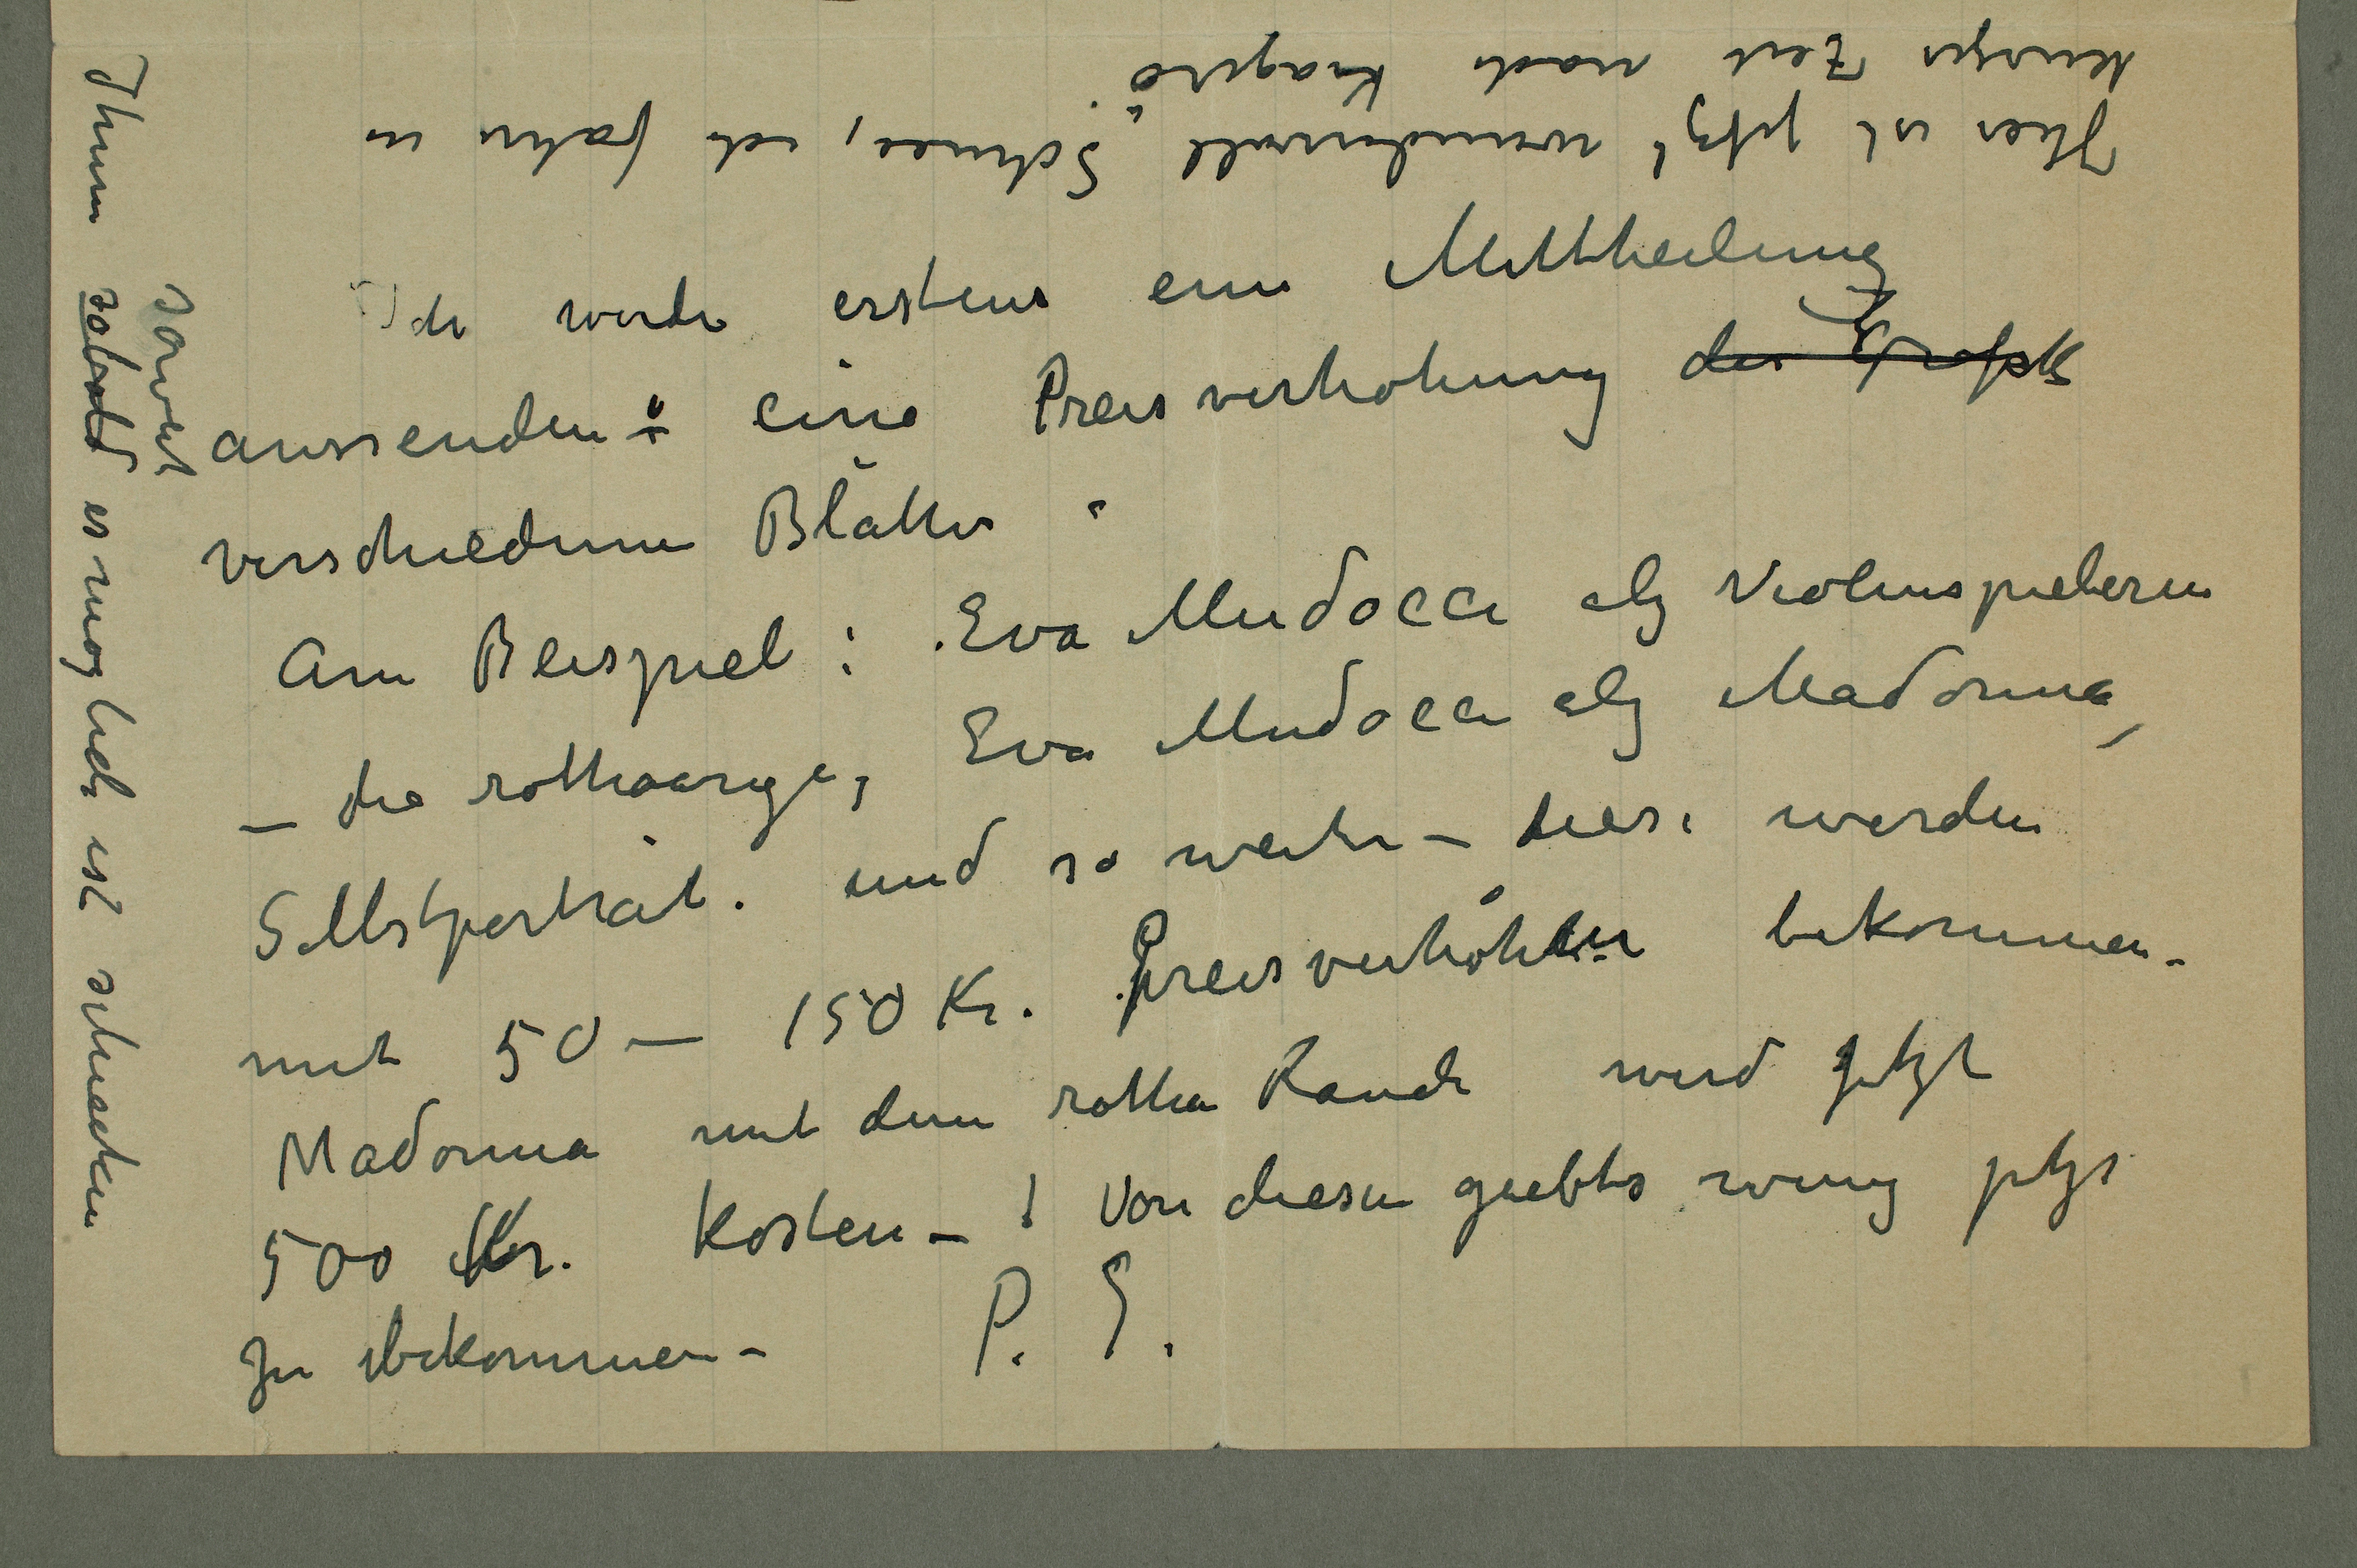 Ich werde erstens eine Mittheilung
aussenden: eine Preisverhöhung der Grafik
verschiedenen Blätter.
Am Beispiel: Eva Mudocci als Violinspielerin
– die rothaarige, Eva Mudocci als Madonna,
Selbstporträt. und so weiter – diese werden
mit 50 – 150 Kr. Preisverhöhen bekommen.
Madonna mit dem rothen Rande wird jetzt
500 Kr. kosten – ! Von diesen giebts wenig jetzt
zu bekommen – P. S.
Hier ist jetzt wundervoll Schnee, ich fahre in
kurzer Zeit nach Kragerø
Ihnen sobald es möglich ist schicken
soviel